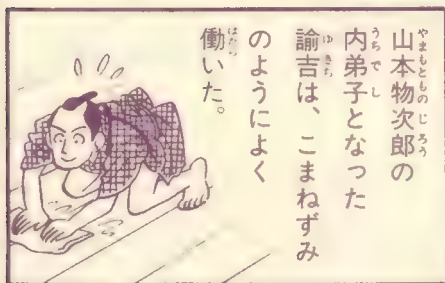 山本物次郎の
内弟子となった
諭吉は、こまねずみ
のようによく
働いた。